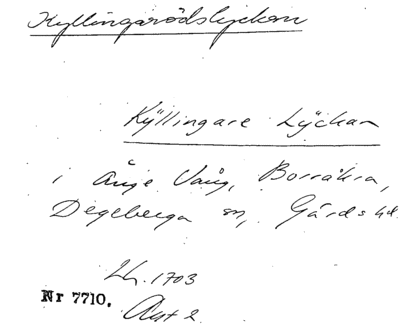 Kyllingarödslyckan
Kÿllingare Lÿckan
i Änge Vång, Borråkra,
Degeberga sn, Gärds hd.
Lh. 1703
Nr 7710. Akt 2